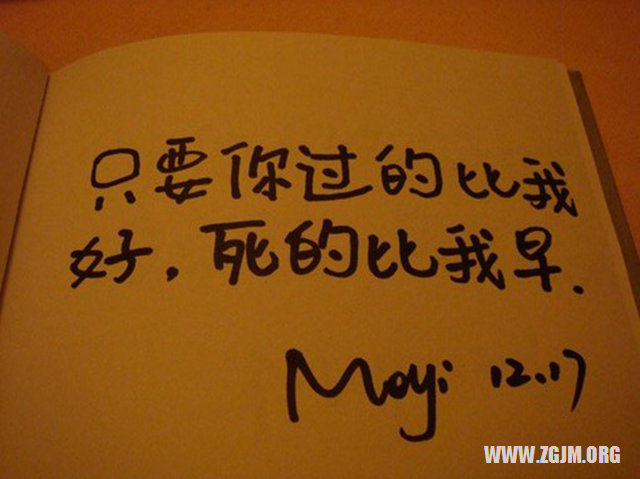 只要你过的比我
好，死的比我早.
Moyi 12.17
WWW.ZGJM.ORG